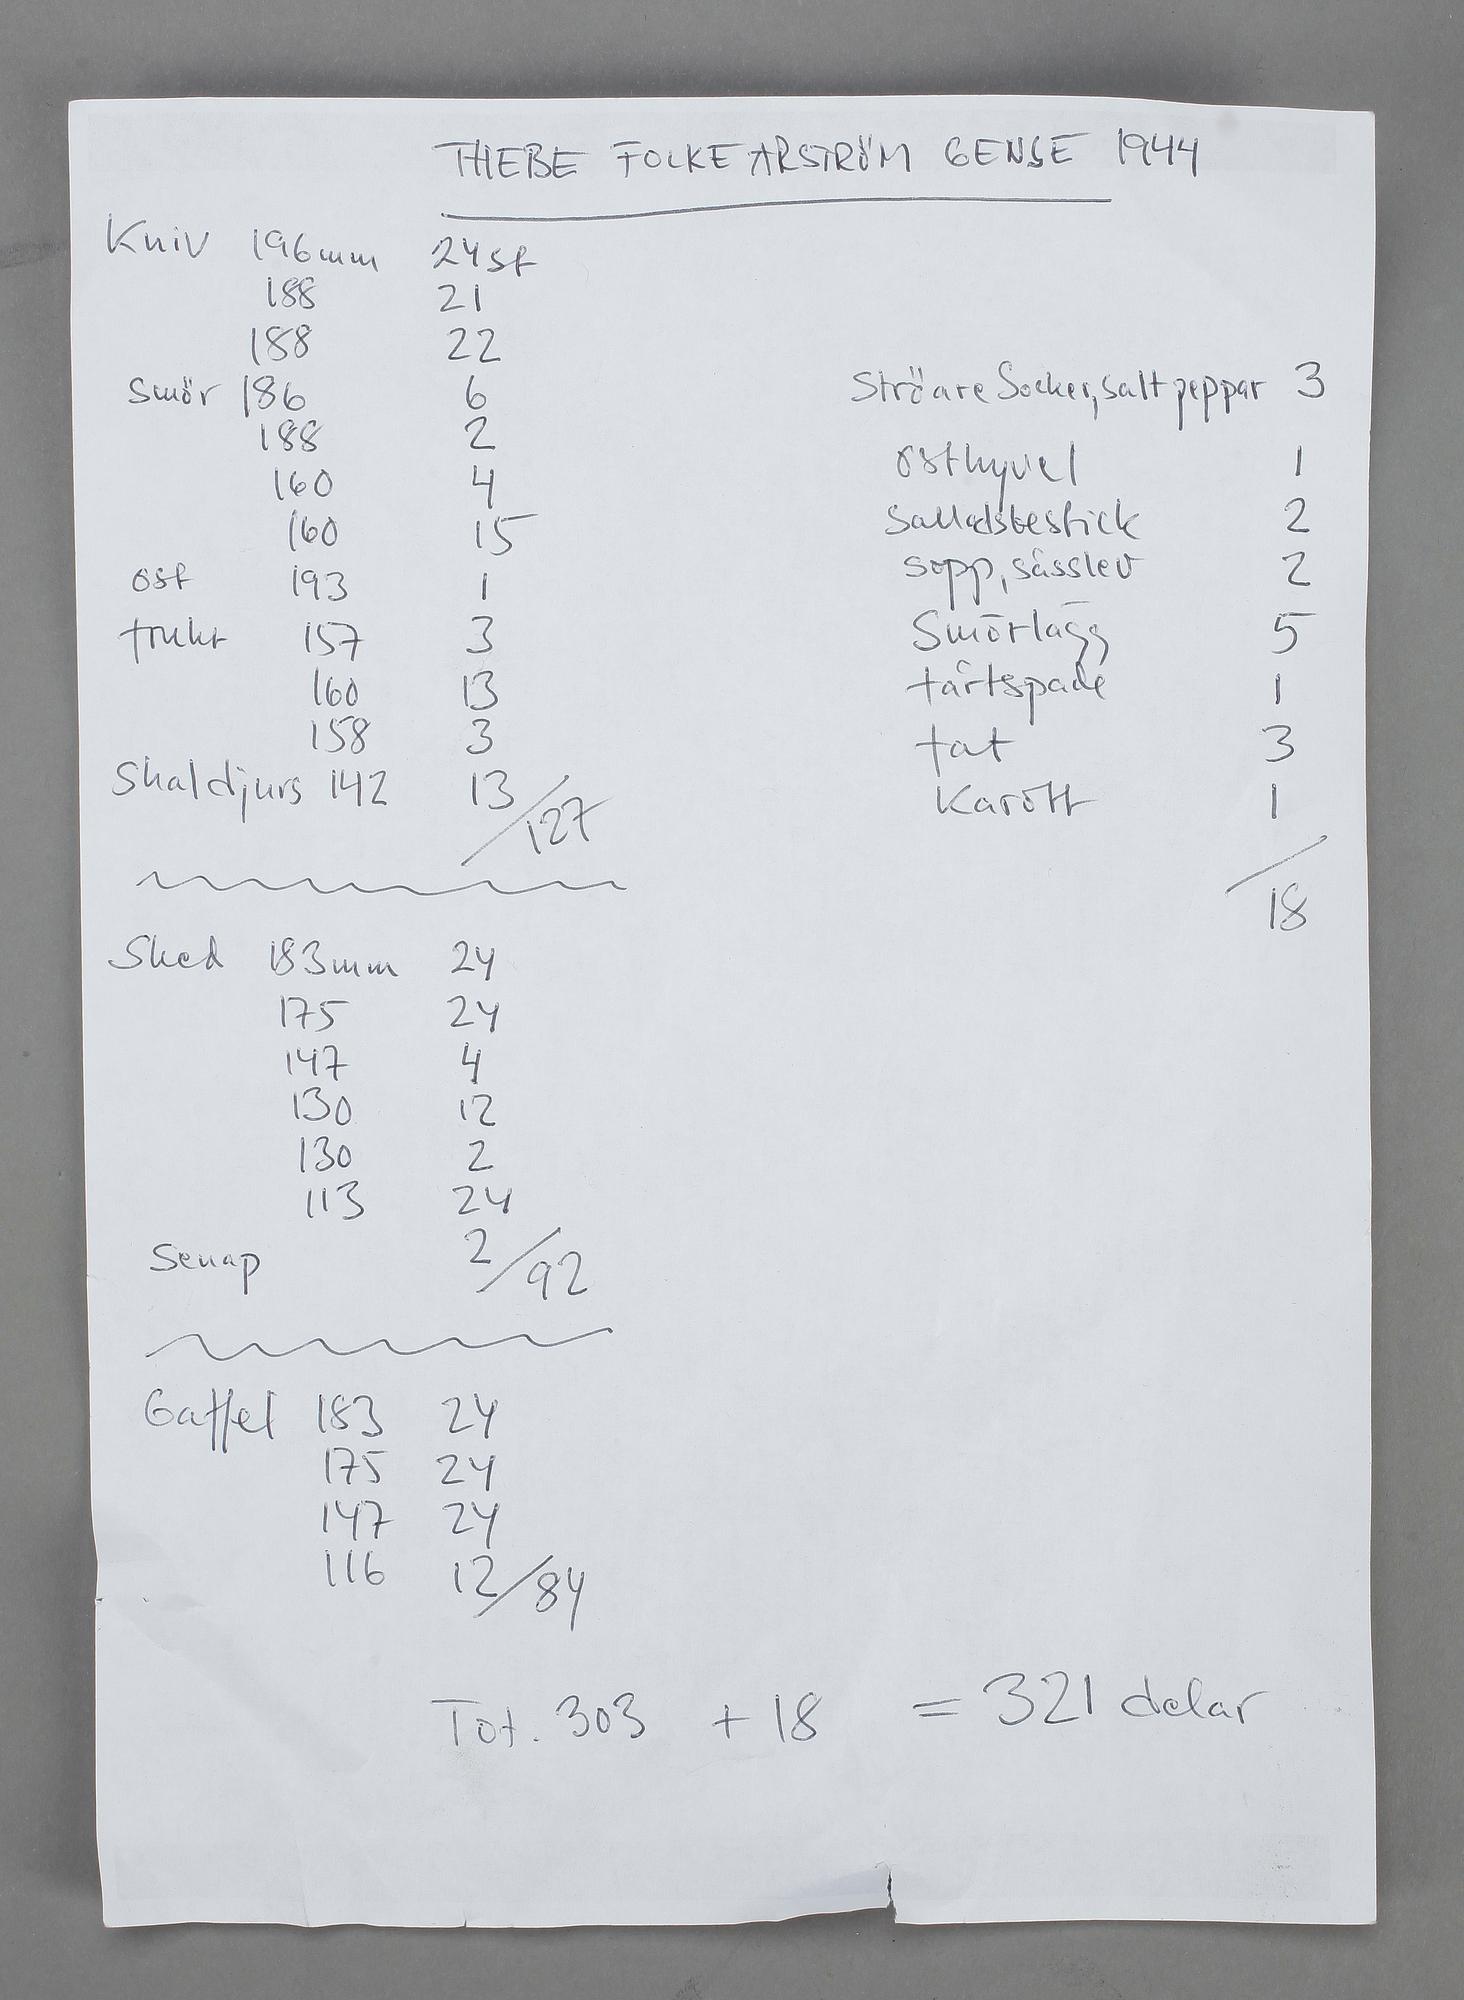 THEBE FOLKE ARSTRÖM GENSE 1944
Kniv 196mm 24st
188 21
188 22
Smör 186 6
188 2
160 4
160 15
ost 193 1
frukt 157 3
160 13
158 3
Skaldjurs 142 13
/127
Sked 183mm 24
175 24
147 4
130 12
130 2
113 24
Senap 2/92
Gaffel 183 24
175 24
147 24
116 12/84
Ströare Socker, salt peppar 3
osthyvel 1
Salladsbestick 2
sopp, såsslev 2
Smörlägg 5
tårtspade 1
fat 3
Karott 1
/18
Tot. 303 + 18 = 321 delar